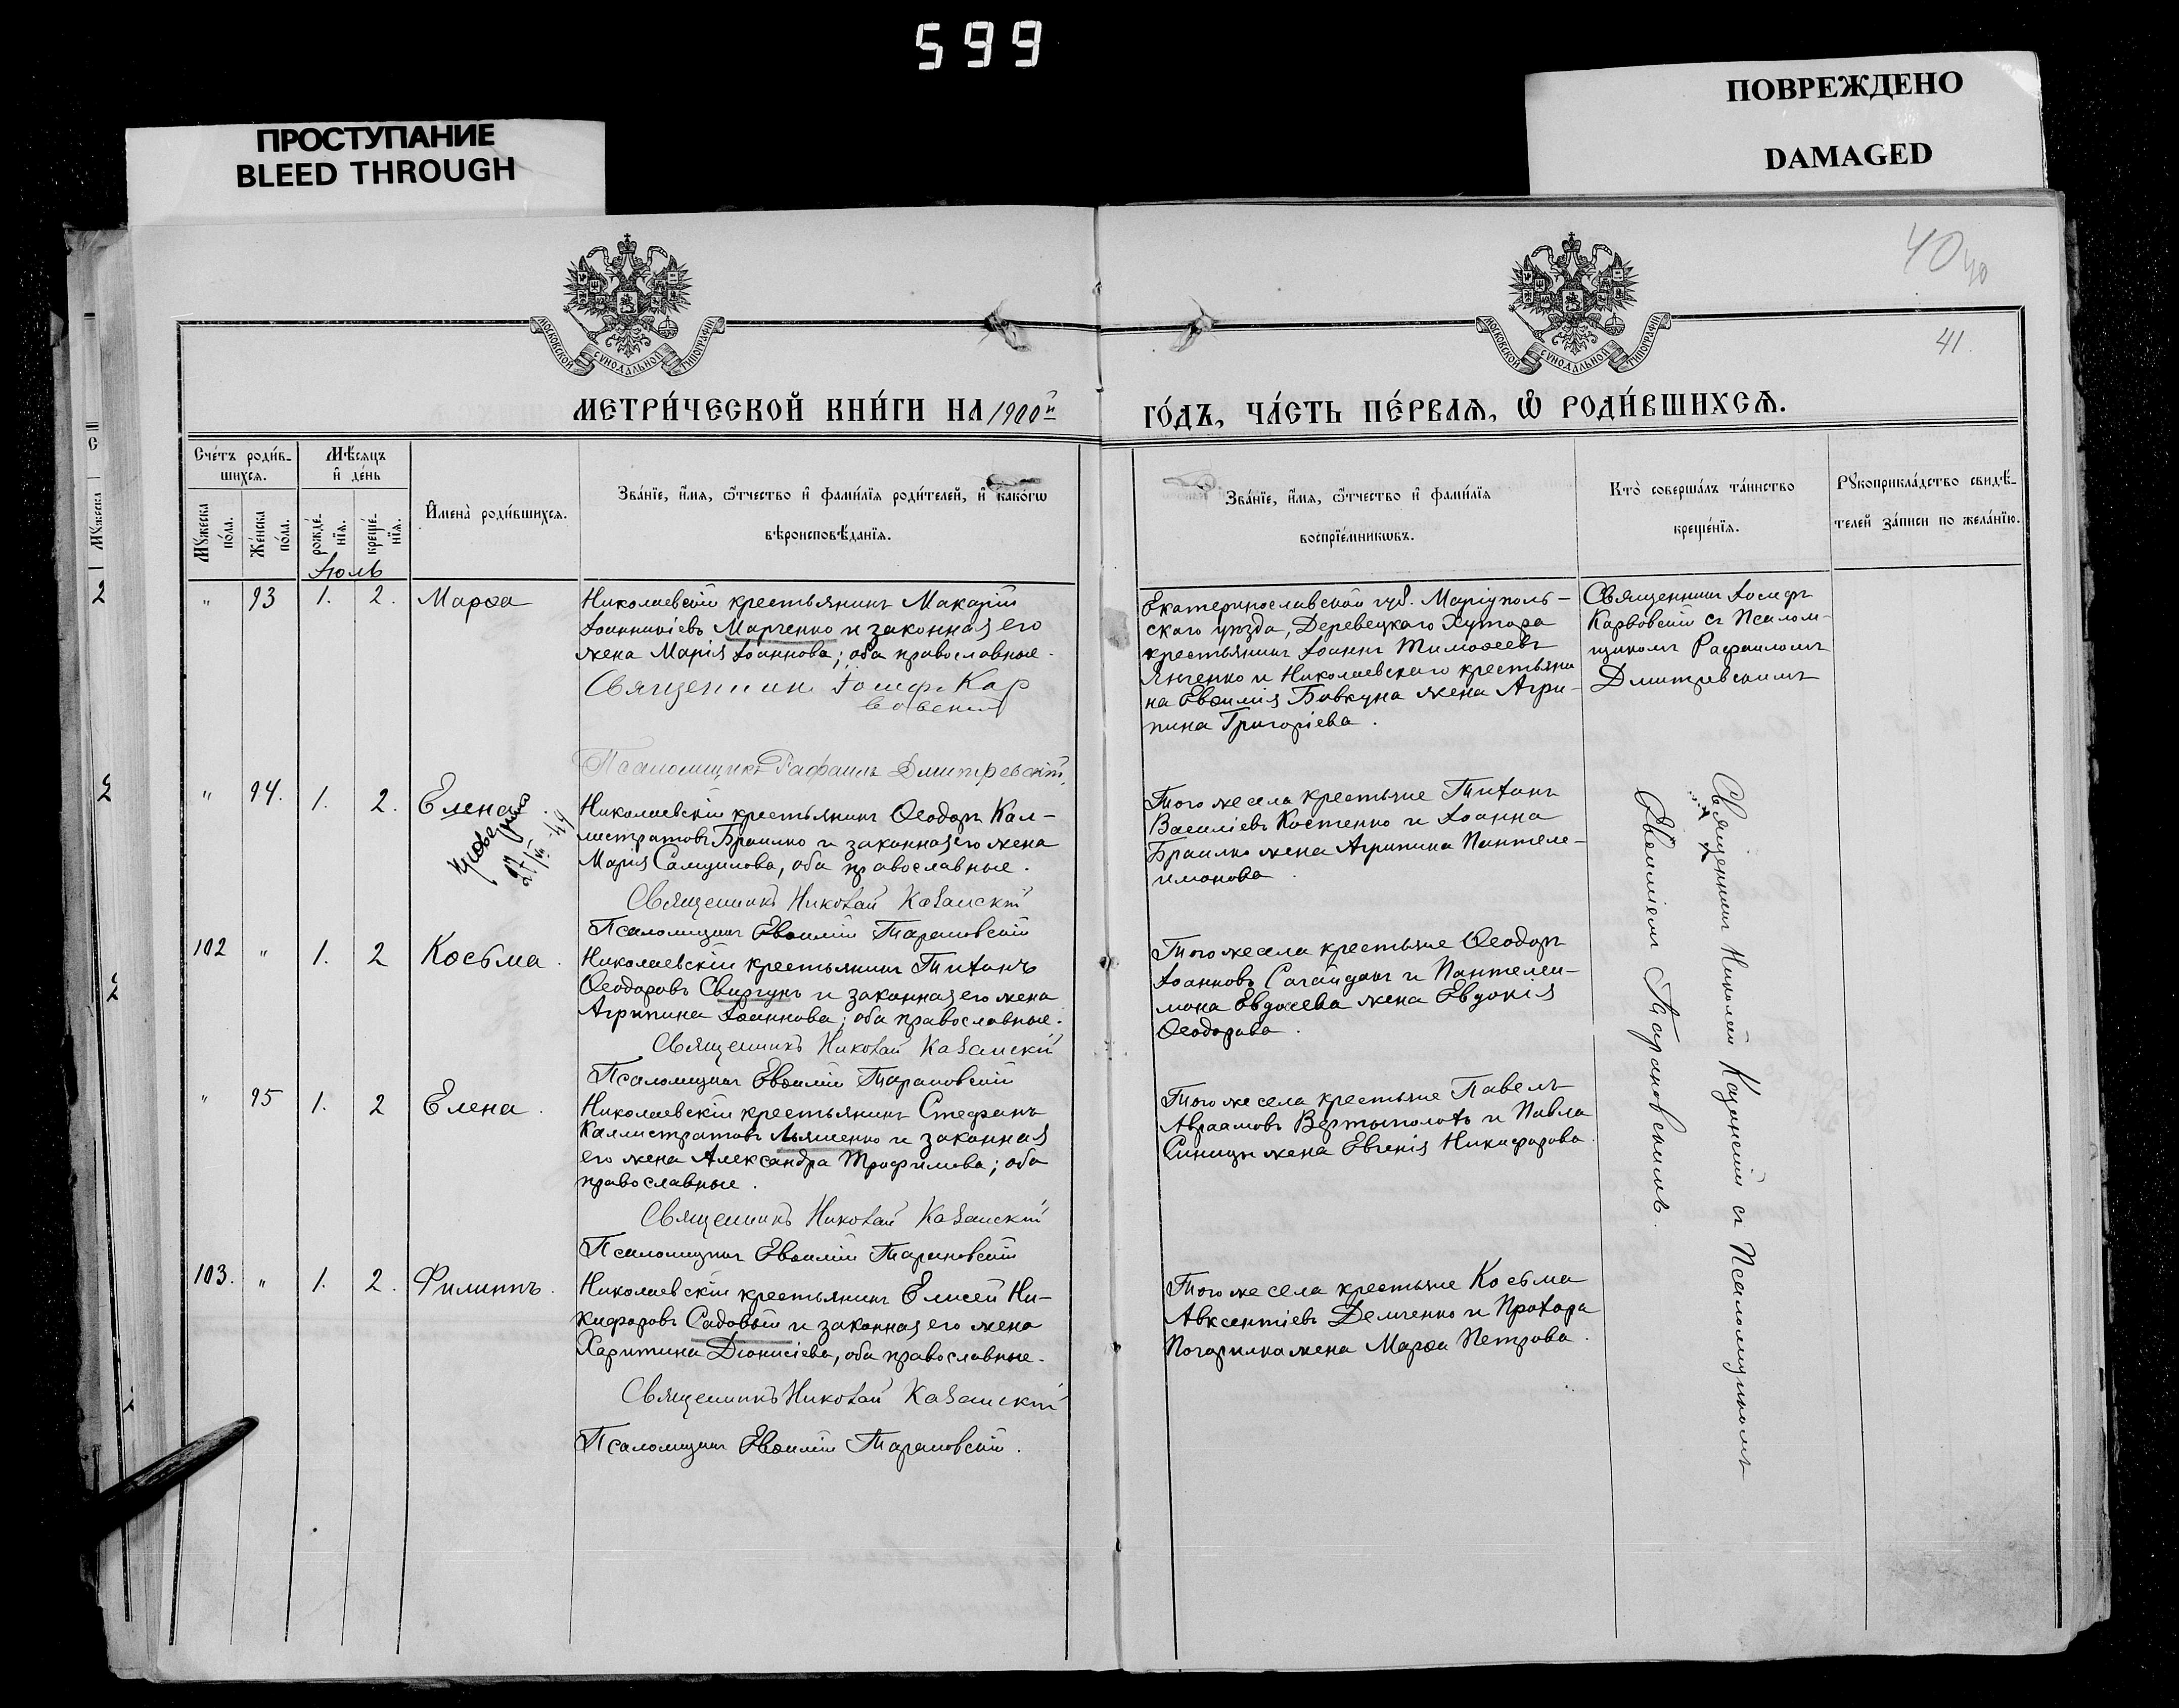 599
ПРОСТУПАНИЕ
BLEED THROUGH
ПОВРЕЖДЕНО
DAMAGED
40
40
41.
МОСКОВСКОЙ СѴНОДАЛЬНОЙ ТИПОГРАФІИ
МОСКОВСКОЙ СѴНОДАЛЬНОЙ ТИПОГРАФІИ
МЕТРИ́ЧЕСКОЙ КНИ́ГИ НА 1900й
ГО́ДЪ, ЧА́СТЬ ПЕ́РВАѦ, Ѡ҆ РОДИ́ВШИХСѦ.
Сче́тъ роди́в-
шихсѧ.
Мѣ́сѧцъ
и҆ де́нь
Мꙋ́жеска
по́ла.
Же́нска
по́ла.
рожде́-
нїѧ.
креще́-
нїѧ.
И҆мена̀ роди́вшихсѧ.
Зва́нїе, и҆́мѧ, ѻ҆́тчество и҆ фами́лїѧ роди́телей, и҆ како́гѡ
вѣроисповѣ́данїѧ.
Зва́нїе, и҆́мѧ, ѻ҆́тчество и҆ фами́лїѧ
воспрїе́мникѡвъ.
Кто̀ соверша́лъ та́инство
креще́нїѧ.
Рꙋкоприкла́дство свидѣ́-
телей за́писи по жела́нїю.
Іюль
" 93 1. 2. Марѳа
Николаевскій крестьянинъ Макарій
Іоанникіевъ Марченко и законная его
жена Марія Іоаннова; оба православные.
Священник Іосиф Кар
вовский
Псаломщикъ Рафаилъ Дмитревскій.
Екатеринославской губ. Маріуполь-
скаго уѣзда, Деревецкаго Хутора
крестьянинъ Іоаннъ Тимоѳеевъ
Янченко и Николаевскаго крестьяни
на Евѳимія Бовкуна жена Агри-
пина Григоріева.
Священникъ Іосифъ
Карвовскій съ Псалом-
щикомъ Рафаиломъ
Дмитревскимъ
" 94. 1. 2. Елена
27/VII 49
Николаевскій крестьянинъ Ѳеодоръ Кал-
листратовъ Браилко и законная его жена
Марія Самуилова, оба православные.
Священникъ Николай Казанскій
Псаломщикъ Евѳимій Тарановскій
Того же села крестьяне Тихонъ
Василіевъ Костенко и Іоанна
Браилко жена Агрипина Пантеле-
имонова.
102 " 1. 2 Косьма.
Николаевскій крестьянинъ Тихонъ
Ѳеодоровъ Свиргунъ и законная его жена
Агрипина Іоаннова; оба православные.
Священникъ Николай Казанскій
Псаломщикъ Евѳимій Тарановскій
Того же села крестьяне Ѳеодоръ
Іоанновъ Сагайдакъ и Пантелеи-
мона Евдосева жена Евдокія
Ѳеодорова.
" 95 1. 2 Елена.
Николаевскій крестьянинъ Стефанъ
Каллистратовъ Ляшенко и законная
его жена Александра Трофимова; оба
православные.
Священникъ Николай Казанскій
Псаломщикъ Евѳимій Тарановскій
Того же села крестьяне Павелъ
Авраамовъ Вертыполохъ и Павла
Синицы жена Евгенія Никифорова.
103. " 1. 2. Филиппъ.
Николаевскій крестьянинъ Елисей Ни-
кифоровъ Садовый и законная его жена
Харитина Діонисіева, оба православные.
Священникъ Николай Казанскій
Псаломщикъ Евѳимій Тарановскій.
Того же села крестьяне Косьма
Авксентіевъ Демченко и Прохора
Погорилка жена Марѳа Петрова.
Священникъ Николай Казанскій съ Псаломщикомъ
Евѳиміемъ Тарановскимъ.